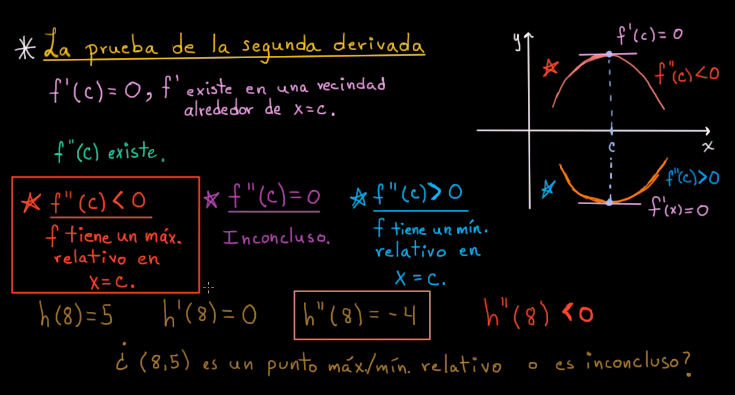 * La prueba de la segunda derivada
f'(c) = 0, f' existe en una vecindad
alrededor de x=c.
f''(c) existe.
f''(c) < 0
f tiene un máx.
relativo en
x=c.
f''(c) = 0
Inconcluso.
f''(c) > 0
f tiene un mín.
relativo en
x = c.
y
f'(c) = 0
f''(c) < 0
c
x
f''(c) > 0
f'(x) = 0
h(8) = 5 h'(8) = 0 h''(8) = -4 h''(8) < 0
¿ (8,5) es un punto máx./mín. relativo o es inconcluso?